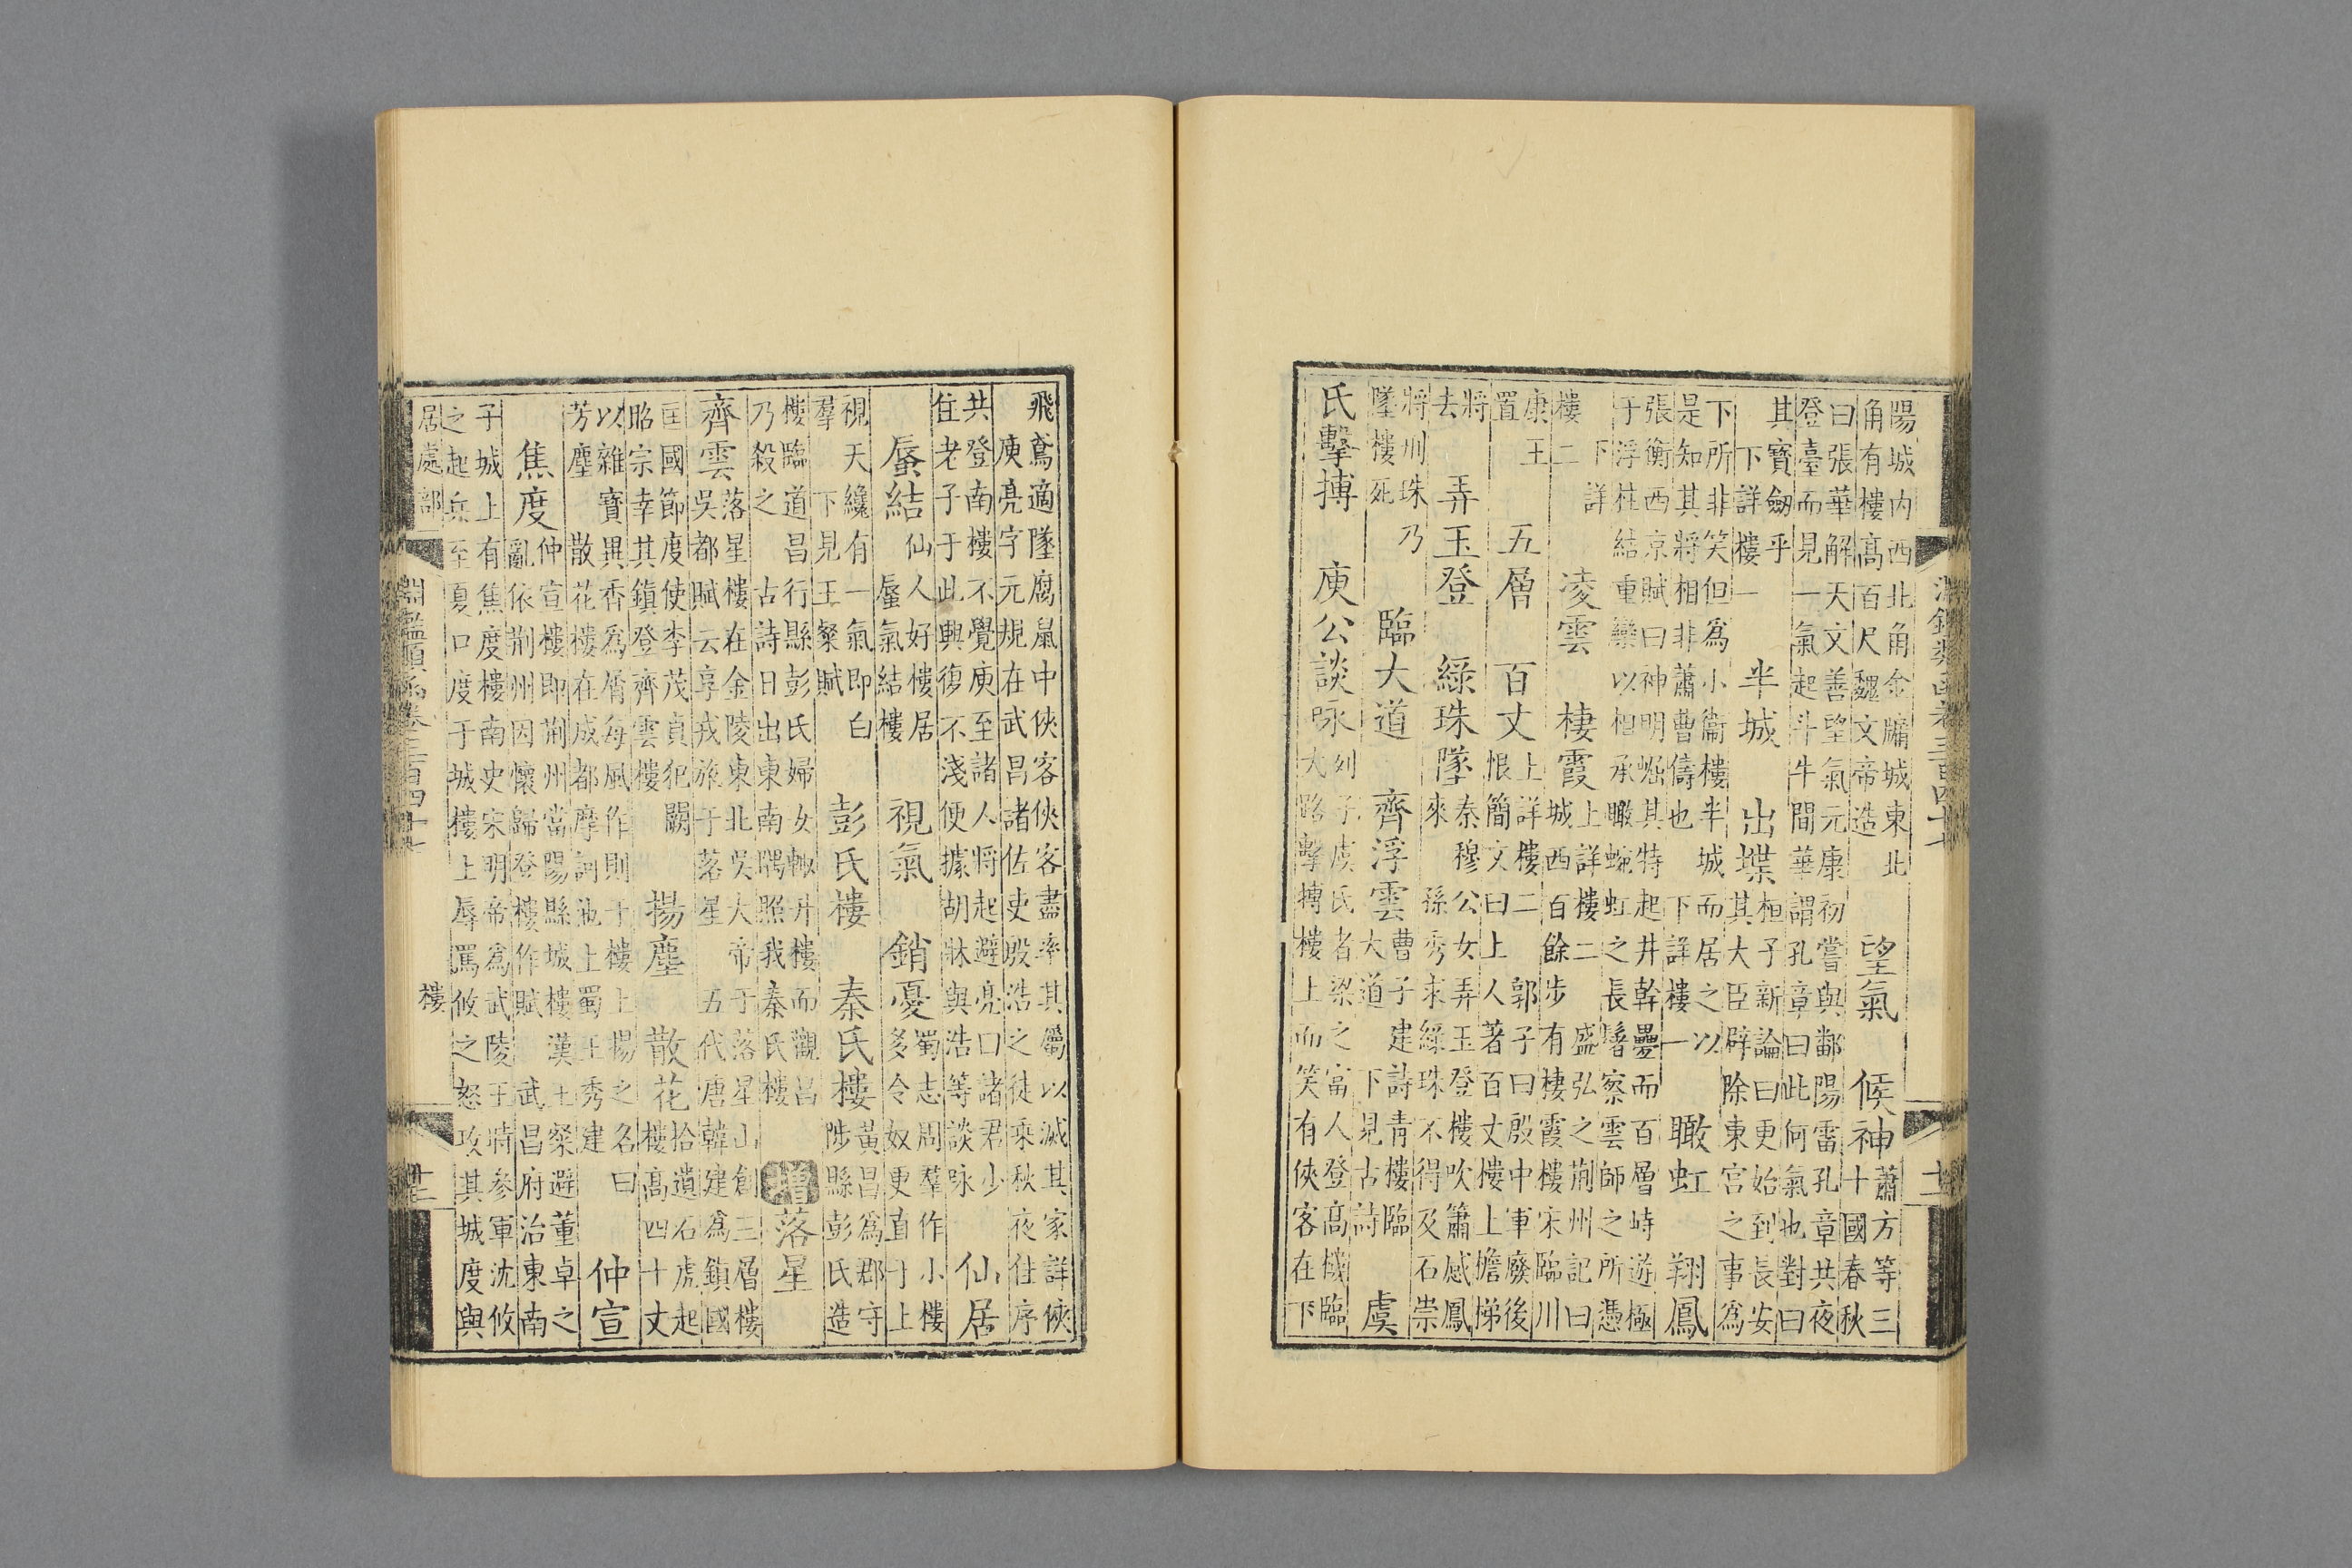 淵鑑類函卷三百四十七 十一
陽城内西北角金牖城東北
角有樓高百尺魏文帝造
望氣 候神
蕭方等三
十國春秋
曰張華解天文善望氣元康初嘗與鄱陽雷孔章共夜
登臺而見一氣起斗牛間華謂孔章曰此何氣也對曰
其寶劒乎
下詳樓一
半城 出堞
桓子新論曰更始到長安
其大臣辟除東宮之事爲
下所非笑但爲小衞樓半城而居之以
是知其將相非蕭曹儔也 下詳樓一
瞰虹 翔鳳
張衡西京賦曰神明崛其特起井幹疊而百層峙遊極
于浮柱結重欒以相承瞰蜿虹之長鬐察雲師之所憑
下詳
樓二
凌雲 棲霞
上詳樓二 盛弘之荆州記曰
城西百餘步有棲霞樓宋臨川
康王
置
五層 百丈
上詳樓二 郭子曰殷中軍廢後
恨簡文曰上人著百丈樓上擔梯
將
去
弄玉登 綠珠墜
秦穆公女弄玉登樓吹簫感鳳
來 孫秀求綠珠不得及石崇
將圳珠乃
墜樓死
臨大道 齊浮雲
曹子建詩青樓臨
大道 下見古詩
虞
氏擊摶 庾公談詠
列子虞氏者梁之富人登高樓臨
大路擊摶樓上而笑有俠客在下
飛鳶適墜腐鼠中俠客俠客盡率其屬以滅其家詳俠
庾亮字元規在武昌諸佐吏殷浩之徒乘秋夜住序
共登南樓不覺庾至諸人將起避亮口諸君少
住老子于此興復不淺便據胡牀與浩等談詠
仙居
蜃結
仙人好樓居
蜃氣結樓
視氣 銷憂
蜀志周羣作小樓
多令奴更直于上
視天纔有一氣即白
羣 下見王粲賦
彭氏樓 秦氏樓
黃昌爲郡守
陟縣彭氏造
樓臨道昌行縣彭氏婦女輙升樓而觀昌
乃殺之 古詩日出東南隅照我秦氏樓
增 落星
齊雲
落星樓在金陵東北吳大帝于落星山創三層樓
吳都賦云享戎旅于落星 五代唐韓建爲鎮國
匡國節度使李茂貞犯闕
昭宗幸其鎮登齊雲樓
揚塵 散花
拾遺石虎起
樓高四十丈
以雜寶異香爲屑每風作則于樓上揚之名曰
芳塵 散花樓在成都摩訶池上蜀王秀建
仲宣
焦度
仲宣樓即荆州當陽縣城樓漢王粲避董卓之
亂依荆州因懷歸登樓作賦 武昌府治東南
子城上有焦度樓南史宋明帝爲武陵王時參軍沈攸
之起兵至夏口度于城樓上辱罵攸之怒攻其城度與
居處部 淵鑑類函卷三百四十七 樓 十二